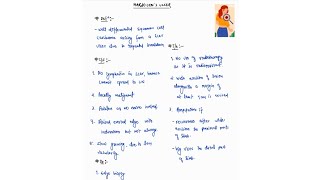 MARJOLIN'S ULCER
* Def :-
- well differentiated squamous cell
carcinoma arising from a scar
ulcer due to repeated breakdown
1. No lymphatics in scar, hence
cannot spread to LN
2. locally malignant
3. Painless as no nerve involved
4. Raised everted edge with
induration but not always
5. Slow growing, due to less
vascularity
1. edge biopsy
1. No use of radiotherapy
as it is radioresistant
2. wide excision of lesion
alongwith a margin of
at least 1cm is curative
3. Amputation if
- recurrence after wide
excision in proximal parts of
limb.
- big ulcer in distal part of
limb.